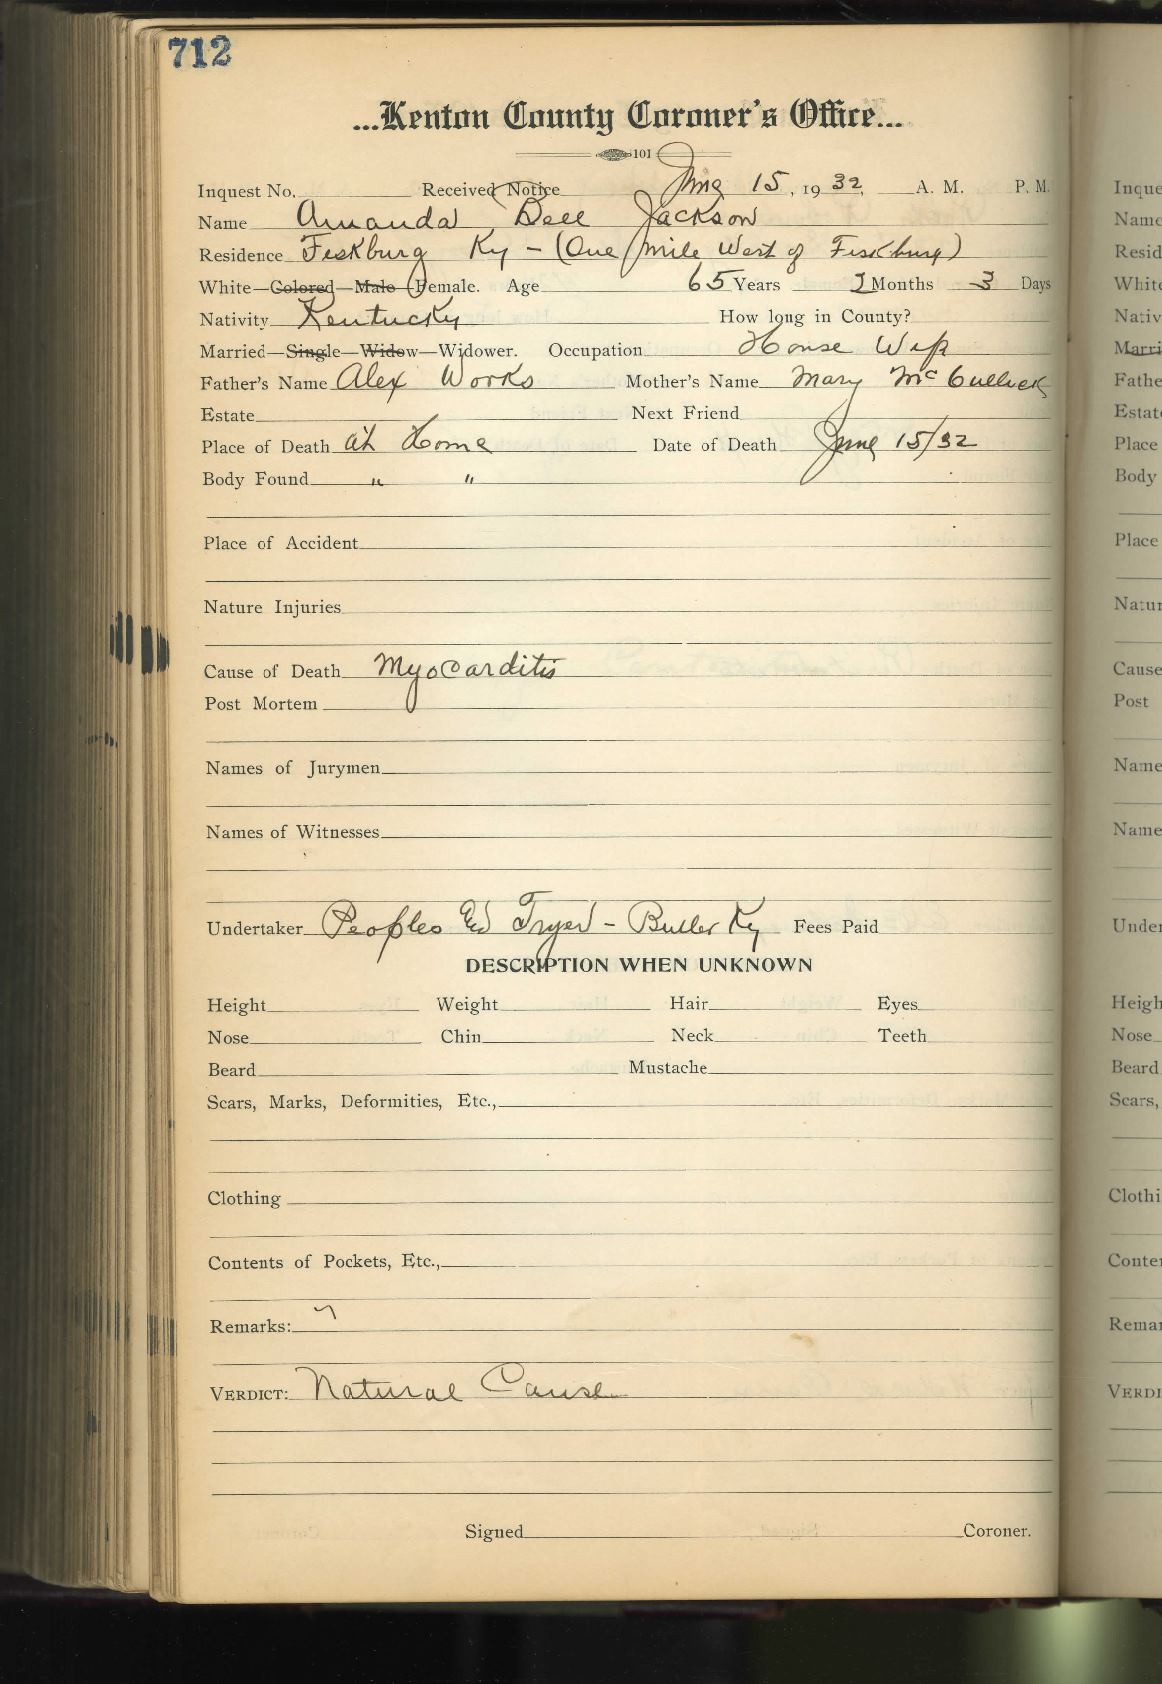 712
...Kenton County Coroner's Office...
101
Inquest No. Received Notice June 15, 1932, A. M. P. M.
Name Amanda Bell Jackson
Residence Fiskburg Ky - (One mile West of Fiskburg)
White—Colored—Male—Female. Age 65 Years 2 Months 3 Days
Nativity Kentucky How long in County?
Married—Single—Widow—Widower. Occupation House Wife
Father's Name Alex Works Mother's Name Mary McCulluck
Estate Next Friend
Place of Death at Home Date of Death June 15/32
Body Found " "
Place of Accident
Nature Injuries
Cause of Death Myocarditis
Post Mortem
Names of Jurymen
Names of Witnesses
Undertaker Peoples - Butler Ky Fees Paid
DESCRIPTION WHEN UNKNOWN
Height Weight Hair Eyes
Nose Chin Neck Teeth
Beard Mustache
Scars, Marks, Deformities, Etc.,
Clothing
Contents of Pockets, Etc.,
Remarks:
VERDICT: Natural Cause
Signed Coroner.
Inque
Name
Resid
White
Nativ
Marri
Fathe
Estate
Place
Body
Place
Natur
Cause
Post
Name
Name
Under
Heigh
Nose
Beard
Scars,
Clothi
Conte
Remar
VERDI